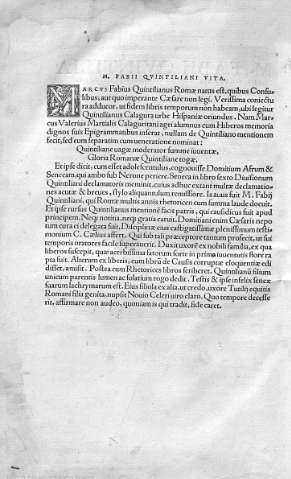 M. FABII QVINTILIANI VITA.
MARCVS Fabius Quintilianus Romæ natus est, quibus Consu
libus, aut quo imperante Cæsare non legi. Verissima coniectu
ra adducor, ut fidem libris temporum non habeam, ubi legitur
Quintilianus Calagura urbe Hispaniæ oriundus. Nam Mar-
cus Valerius Martialis Calaguritani agri alumnus cum Hiberos memoria
dignos suis Epigrammatibus inserat, nullam de Quintiliano mentionem
fecit, sed eum separatim cum ueneratione nominat:
Quintiliane uagæ moderator summe iuuentæ,
Gloria Romanæ Quintiliane togæ.
Et ipse dicit, cum esset adolescentulus, cognouisse Domitium Afrum &
Senecam, qui ambo sub Nerone periere. Seneca in libro sexto
Quintiliani declamatoris meminit, cuius adhuc extant multæ declamatio-
nes acutæ & breues, stylo aliquantulum remissiore. Is auus fuit M. Fabij
Quintiliani, qui Romæ multis annis rhetoricen cum summa laude docuit.
Et ipse rursus Quintilianus mentionē facit patris, qui causidicus fuit apud
principem. Neq; nomina, neq; gratia caruit. Domitiani enim Cæsaris nepo
tum cura ei delegata fuit. Disciplinæ eius castigatissimæ plenissimum testi-
monium C. Cælius affert. Qui sub tali præceptore tantum profecit, ut sui
temporis oratores facile superauerit. Duxit uxorē ex nobili familia, ex qua
liberos suscepit, quæ acerbissima fatorum sorte in primo iuuentutis flore ra
pta fuit. Alterum ex liberis, cum librū de Causis corruptæ eloquentiæ edi
disset, amisit. Postea cum Rhetoricos libros scriberet, Quintilianū filium
unicum parentis lumen ac solatium rogo dedit. Testis & ipse infelix senectæ
suarum lachrymarum est. Eius soboles ex alta, ut credo, uxore Tutilij equitis
Romani filia genita, nupsit Nouio Celeri uiro claro. Quo tempore decesse
rit, affirmare non audeo, quoniam is qui tradit, fide caret.